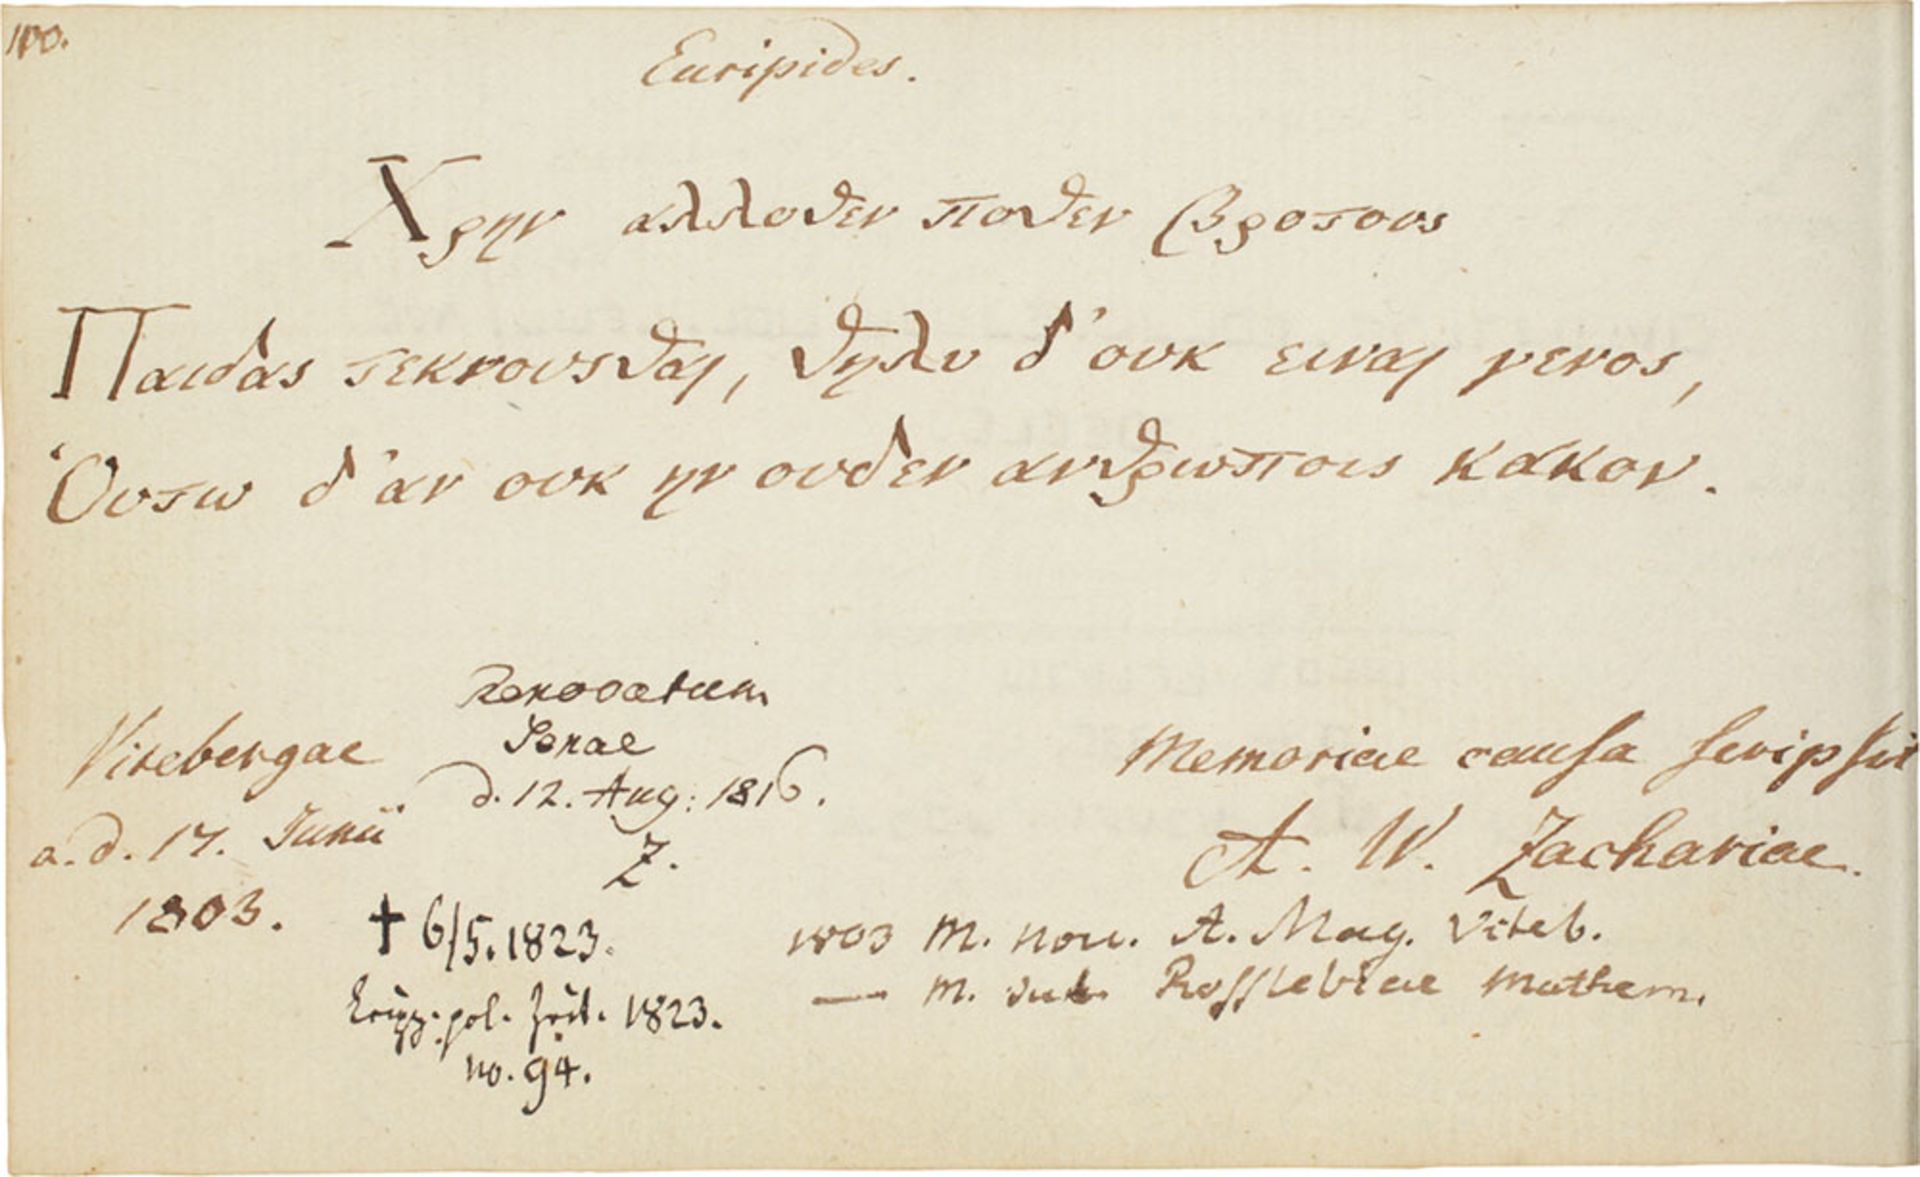 100.
Euripides.
Χρην αλλοθεν ποθεν βροτους
Παιδας τεκνουσθαι, θηλυ δ' ουκ ειναι γενος,
Ὁυτω δ' αν ουκ ην ουδεν ανθρωποις κακον.
Vitebergae
a. d. 17. Junii
1803.
Renovatum
Jenae
d. 12. Aug: 1816.
Z.
† 6/5. 1823.
Leipz. pol. Zeit. 1823.
no. 94.
Memoriae causa scripsit
A. W. Zachariae.
1803 M. nov. A. Mag. Viteb.
— M. Rossleviae Mathem.